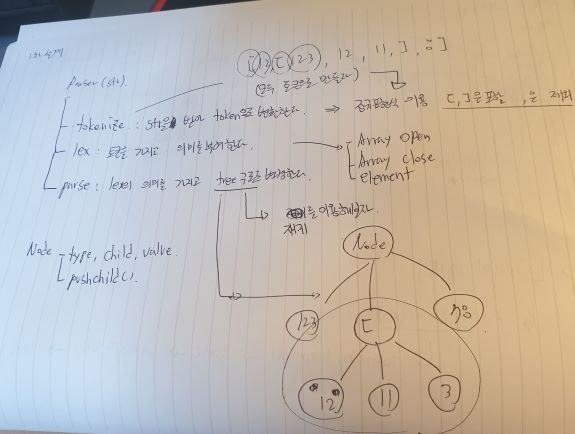 1차 설계
[ 13 [ 123, 12, 11, ], 용]
(모두 토큰으로 만들다)
Parser(str)
tokenize : str을 받아 token으로 변환한다. ⇒ 정규표현식 이용 [, ]은 포함 , 은 제외
lex : 토큰을 가지고 의미를 부여한다.
Array Open
Array close
element
parse : lex의 의미를 가지고 tree 구조로 변경한다.
를 이용해보자.
재귀
Node - type, child, value.
pushchild().
Node
123 [
12 11 3